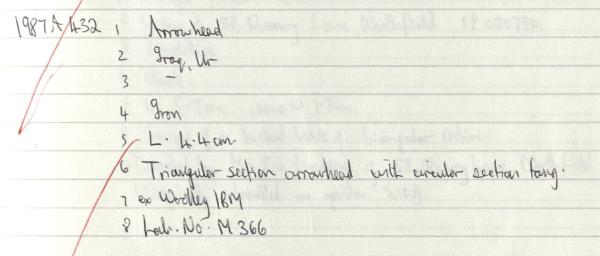 1987A432 1 Arrowhead
2 Iraq, Ur
3 -
4 Iron
5 L. 4.4cm.
6 Triangular section arrowhead with circular section tang.
7 ex Woolley/BM
8 Lab. No. M 366